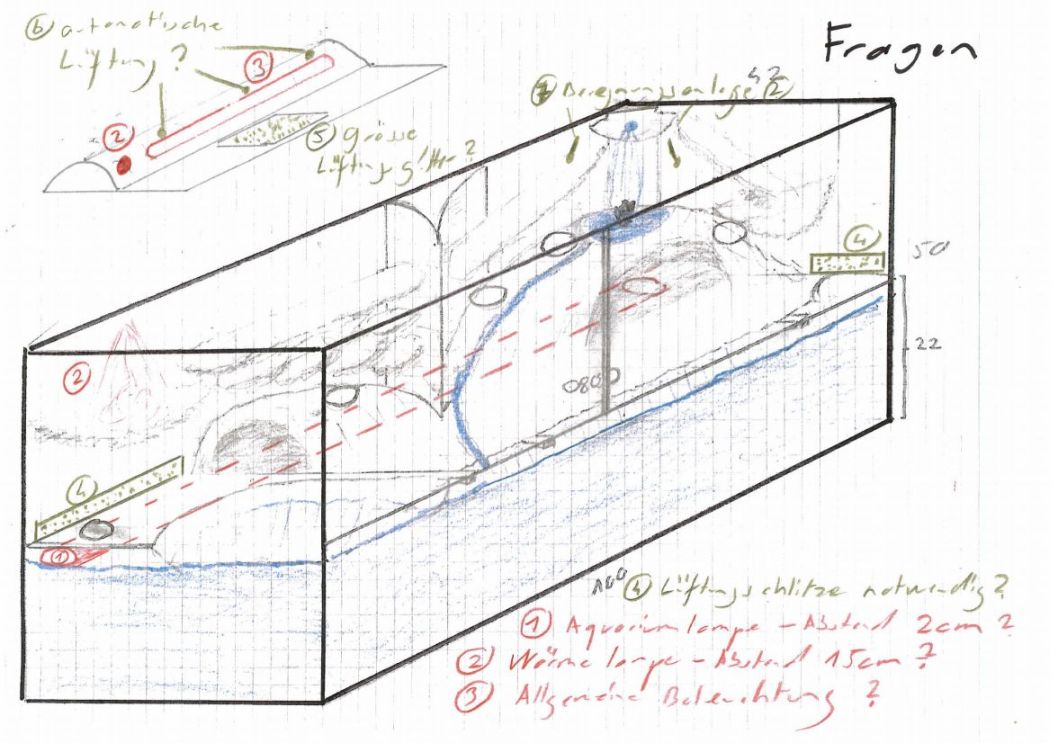 Fragen
⑥ automatische
Lüftung?
③
②
⑤ Grösse
Lüftungsgitter?
42
⑦ Beregnungsanlage
④
50
22
②
④
①
100
④ Lüftungsschlitze notwendig?
① Aquariumlampe - Abstand 2cm?
② Wärmelampe - Abstand 15cm?
③ Allgemeine Beleuchtung?